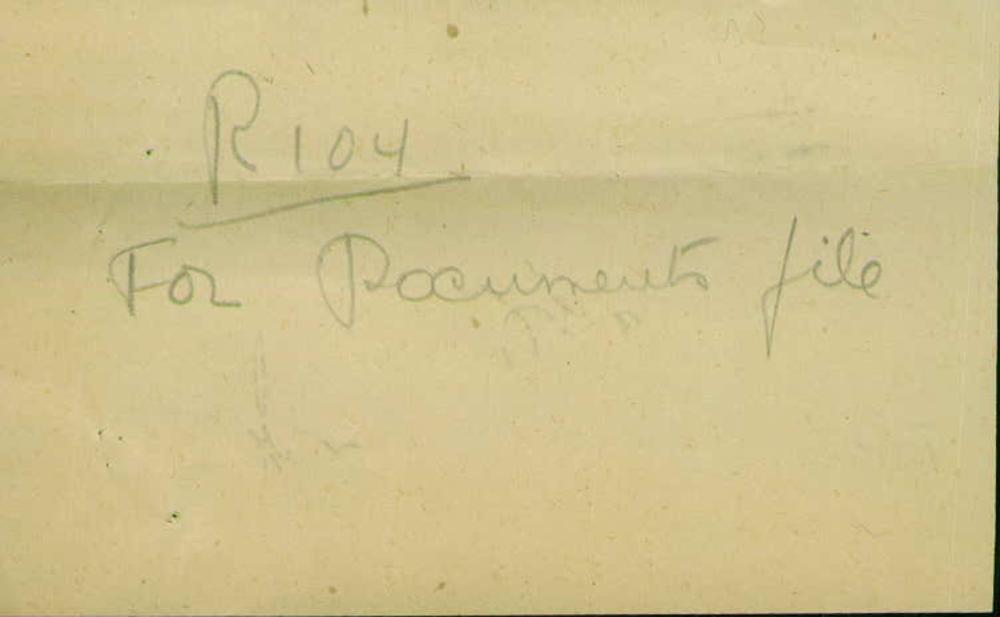 R104
For Documents file